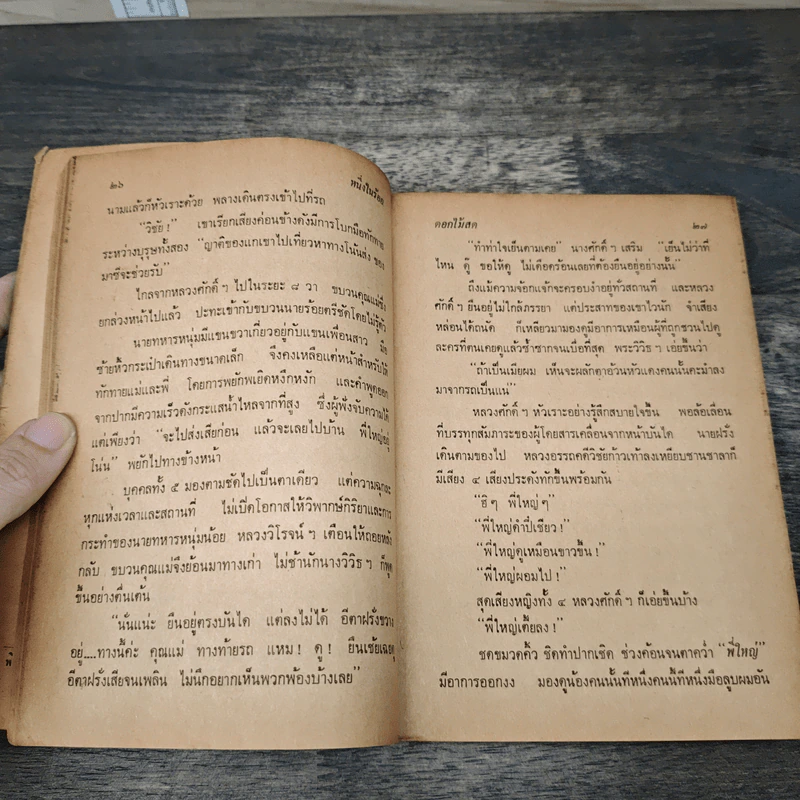 ๒๖
หนึ่งในร้อย
นามแล้วก็หัวเราะด้วย พลางเดินตรงเข้าไปที่รถ
“วิชัย !” เขาเรียกเสียงค่อนข้างดังมีการโบกมือทักทาย
ระหว่างบุรุษทั้งสอง “ญาติของแกเขาไปเที่ยวหาทางโน้นส่ง ของ
มาซีจะช่วยรับ”
ไกลจากหลวงศักดิ์ ฯ ไปในระยะ ๘ วา ขบวนคุณแม่ซึ่ง
ยกล่วงหน้าไปแล้ว ปะทะเข้ากับขบวนนายร้อยตรีชัดโดยไม่รู้ตัว
นายทหารหนุ่มมีแขนขวาเกี่ยวอยู่กับแขนเพื่อนสาว มือ
ซ้ายหิ้วกระเป๋าเดินทางขนาดเล็ก จึงคงเหลือแต่หน้าสำหรับใช้
ทักทายแม่และพี่ โดยการพยักพเยิดหงึกหงัก และคำพูดออก
จากปากมีความเร็วดังกระแสน้ำไหลจากที่สูง ซึ่งผู้ฟังจับความได้
แต่เพียงว่า “จะไปส่งเสียก่อน แล้วจะเลยไปบ้าน พี่ใหญ่อยู่
โน่น” พยักไปทางข้างหน้า
บุคคลทั้ง ๕ มองตามชัดไปเป็นตาเดียว แต่ความฉุกละ
หุกแห่งเวลาและสถานที่ ไม่เปิดโอกาสให้วิพากษ์กิริยาและการ
กระทำของนายทหารหนุ่มน้อย หลวงวิโรจน์ ฯ เตือนให้ถอยหลัง
กลับ ขบวนคุณแม่จึงย้อนมาทางเก่า ไม่ช้านักนางวิวิธ ฯ ก็พูด
ขึ้นอย่างตื่นเต้น
“นั่นแน่ะ ยืนอยู่ตรงบันได แต่ลงไม่ได้ อีตาฝรั่งขวาง
อยู่....ทางนี้ค่ะ คุณแม่ ทางท้ายรถ แหม ! ดู ! ยืนเชยเฉยดู
อีตาฝรั่งเสียจนเพลิน ไม่นึกอยากเห็นพวกพ้องบ้างเลย”
ดอกไม้สด
๒๗
“ทำท่าใจเย็นตามเคย” นางศักดิ์ ฯ เสริม “เย็นไม่ว่าที่
ไหน ดู๊ ขอให้ดู ไม่เดือดร้อนเลยที่ต้องยืนอยู่อย่างนั้น”
ถึงแม้ความจ้อกแจ้กจะครอบงำอยู่ทั่วสถานที่ และหลวง
ศักดิ์ ฯ ยืนอยู่ไม่ใกล้ภรรยา แต่ประสาทของเขาไวนัก จำเสียง
หล่อนได้ถนัด ก็เหลียวมามองดูมีอาการเหมือนผู้ที่ถูกชวนไปดู
ละครที่ตนเคยดูแล้วซ้ำซากจนเบื่อที่สุด พระวิวิธ ฯ เอ่ยขึ้นว่า
“ถ้าเป็นเมียผม เห็นจะผลักตาอ้วนหัวแดงคนนั้นคะมำลง
มาจากรถเป็นแน่”
หลวงศักดิ์ ฯ หัวเราะอย่างรู้สึกสบายใจขึ้น พอล้อเลื่อน
ที่บรรทุกสัมภาระของผู้โดยสารเคลื่อนจากหน้าบันได นายฝรั่ง
เดินตามของไป หลวงอรรถคดีวิชัยก้าวเท้าลงเหยียบชานชาลาก็
มีเสียง ๔ เสียงประดังทักขึ้นพร้อมกัน
“ฮิ ๆ พี่ใหญ่ ๆ”
“พี่ใหญ่ดำปี๋เชียว !”
“พี่ใหญ่ดูเหมือนขาวขึ้น !”
“พี่ใหญ่ผอมไป !”
สุดเสียงหญิงทั้ง ๔ หลวงศักดิ์ ฯ ก็เอ่ยขึ้นบ้าง
“พี่ใหญ่เตี้ยลง !”
ชดขมวดคิ้ว ชิดทำปากเชิด ช่วงค้อนจนตาคว่ำ “พี่ใหญ่”
มีอาการออกงง มองดูน้องคนนั้นทีหนึ่งคนนี้ทีหนึ่งมือลูบผมอัน